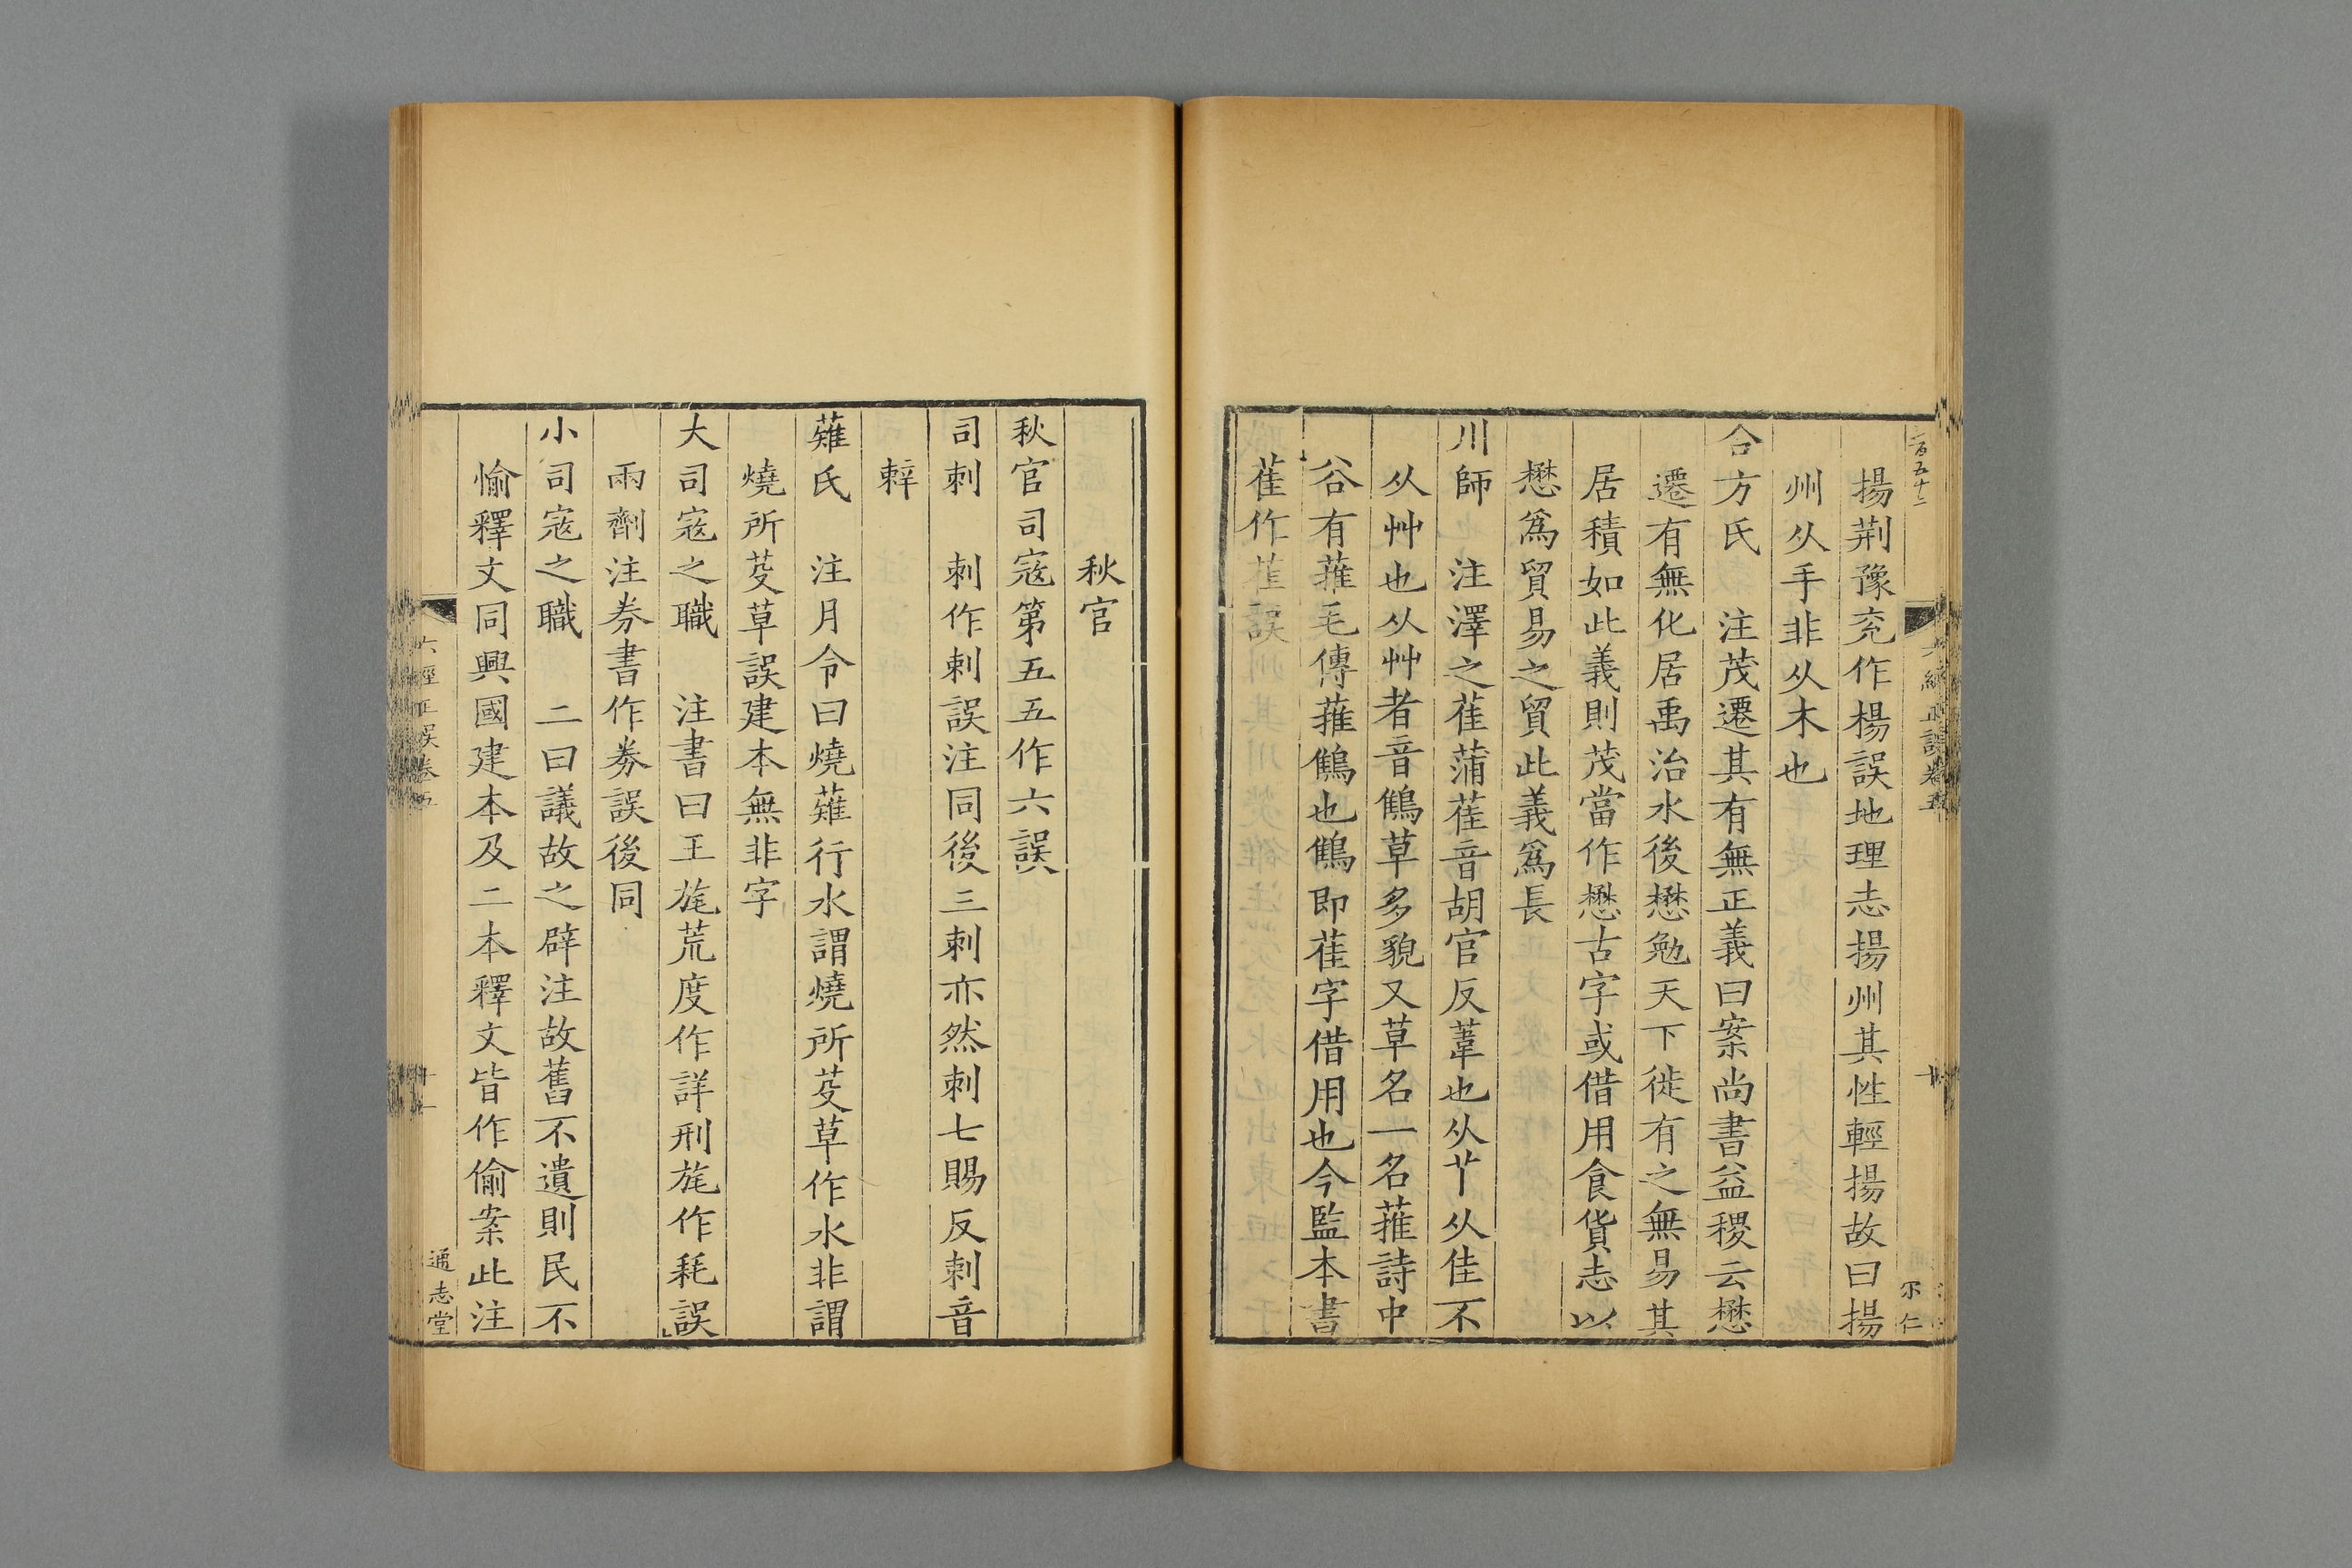 一百五十二
揚荆豫兖作楊誤地理志揚州其性輕揚故曰揚
州从手非从木也
合方氏　注茂遷其有無正義曰案尚書益稷云懋
遷有無化居禹治水後懋勉天下徙有之無易其
居積如此義則茂當作懋古字或借用食貨志以
懋爲貿易之貿此義爲長
川師　注澤之萑蒲萑音胡官反葦也从艹从隹不
从艸也从艸者音鵻草多貌又草名一名蓷詩中
谷有蓷毛傳蓷鵻也鵻即萑字借用也今監本書
萑作萑誤
六經正誤卷五
十
尔仁
秋官
秋官司寇第五五作六誤
司刺　刺作剌誤注同後三刺亦然刺七賜反剌音
辢
薙氏　注月令曰燒薙行水謂燒所芟草作水非謂
燒所芟草誤建本無非字
大司寇之職　注書曰王旄荒度作詳刑旄作耗誤
兩劑注券書作劵誤後同
小司寇之職　二曰議故之辟注故舊不遺則民不
愉釋文同興國建本及二本釋文皆作偷案此注
六經正誤卷五
十一
通志堂